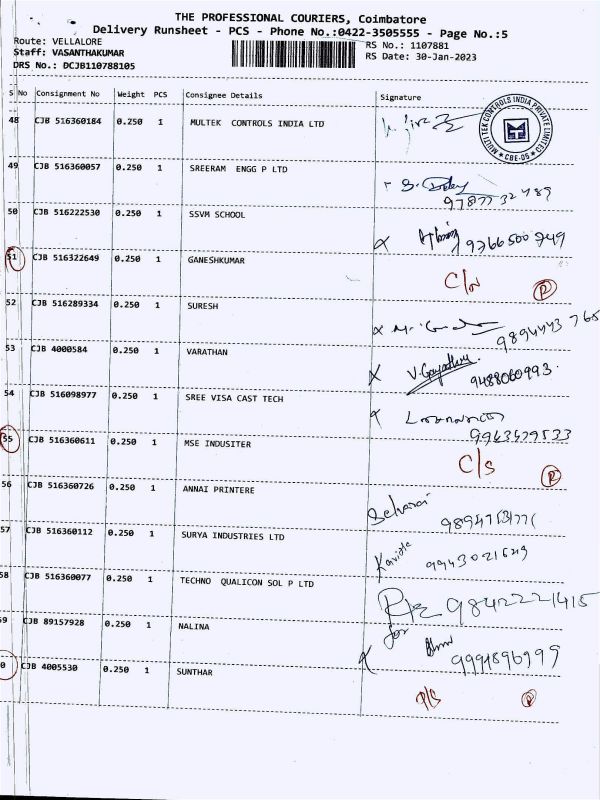 THE PROFESSIONAL COURIERS, Coimbatore
Delivery Runsheet - PCS - Phone No.:0422-3505555 - Page No.:5
Route: VELLALORE
RS No.: 1107881
Staff: VASANTHAKUMAR
RS Date: 30-Jan-2023
DRS No.: DCJB110788105
S No Consignment No Weight PCS Consignee Details Signature
48 CJB 516360184 0.250 1 MULTEK CONTROLS INDIA LTD
MULTI TEK CONTROLS INDIA PRIVATE LIMITED
CBE-05
49 CJB 516360057 0.250 1 SREERAM ENGG P LTD
50 CJB 516222530 0.250 1 SSVM SCHOOL
9766500749
51 CJB 516322649 0.250 1 GANESHKUMAR
R
52 CJB 516289334 0.250 1 SURESH
9894443 765
53 CJB 4000584 0.250 1 VARATHAN
V. Gayathri 9488060993
54 CJB 516098977 0.250 1 SREE VISA CAST TECH
55 CJB 516360611 0.250 1 MSE INDUSITER
C/S R
56 CJB 516360726 0.250 1 ANNAI PRINTERE
57 CJB 516360112 0.250 1 SURYA INDUSTRIES LTD
58 CJB 516360077 0.250 1 TECHNO QUALICON SOL P LTD
9842221415
59 CJB 89157928 0.250 1 NALINA
for
0 CJB 4005530 0.250 1 SUNTHAR
P/S R